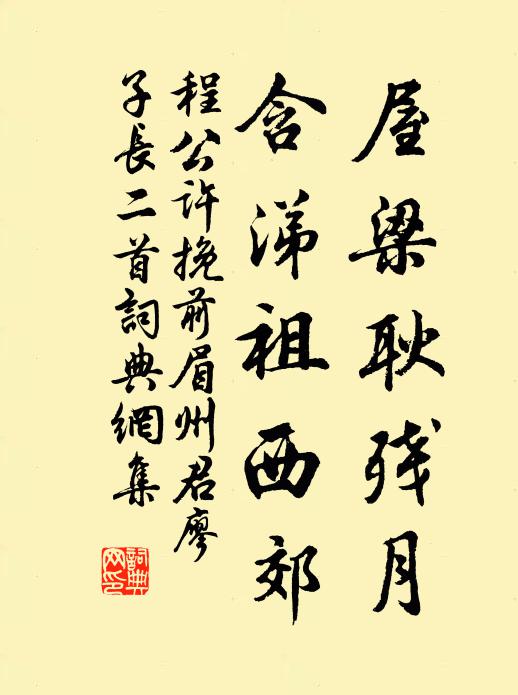 屋梁耿残月
含涕祖西郊
程公许挽前眉州君廖
子長二首詞典網集
詞典网印